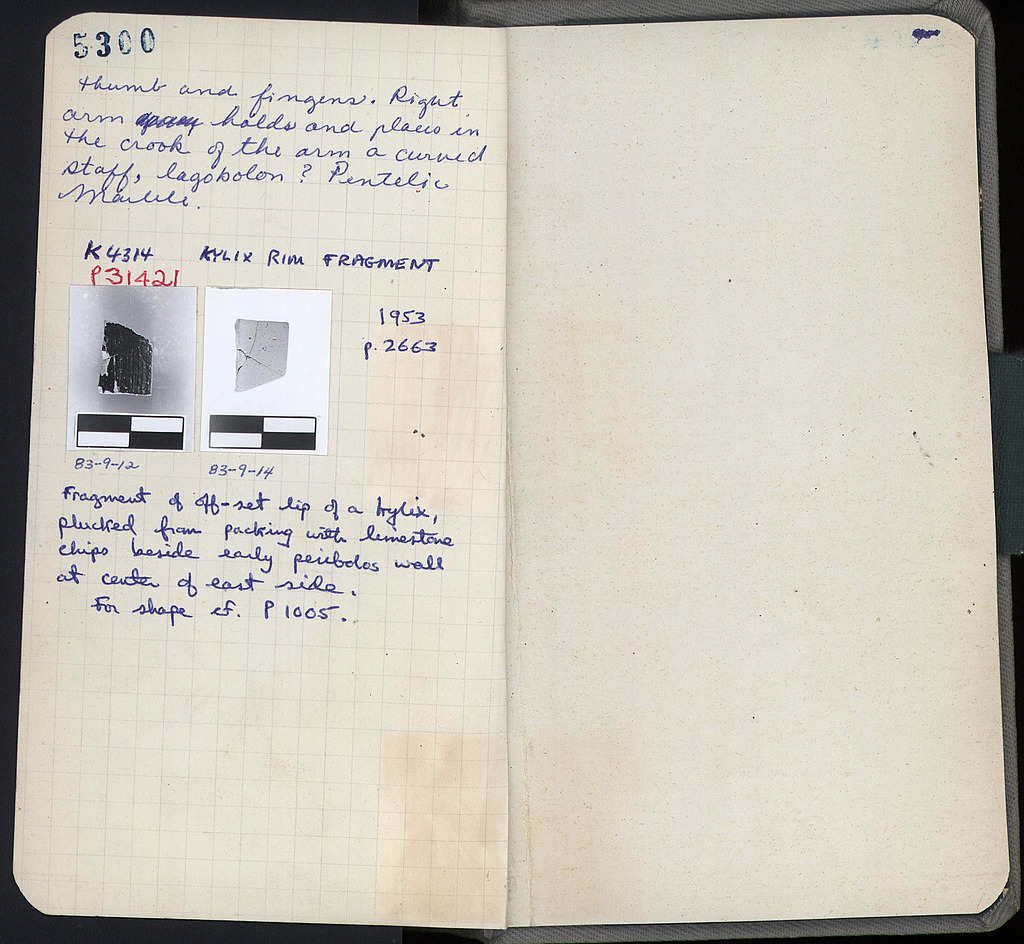 5300
thumb and fingers. Right
arm holds and places in
the crook of the arm a curved
staff, lagobolon? Pentelic
Marble.
K 4314 KYLIX RIM FRAGMENT
P31421
1953
p. 2663
83-9-12 83-9-14
Fragment of off-set lip of a kylix,
plucked from packing with limestone
chips beside early peribolos wall
at center of east side.
For shape cf. P 1005.